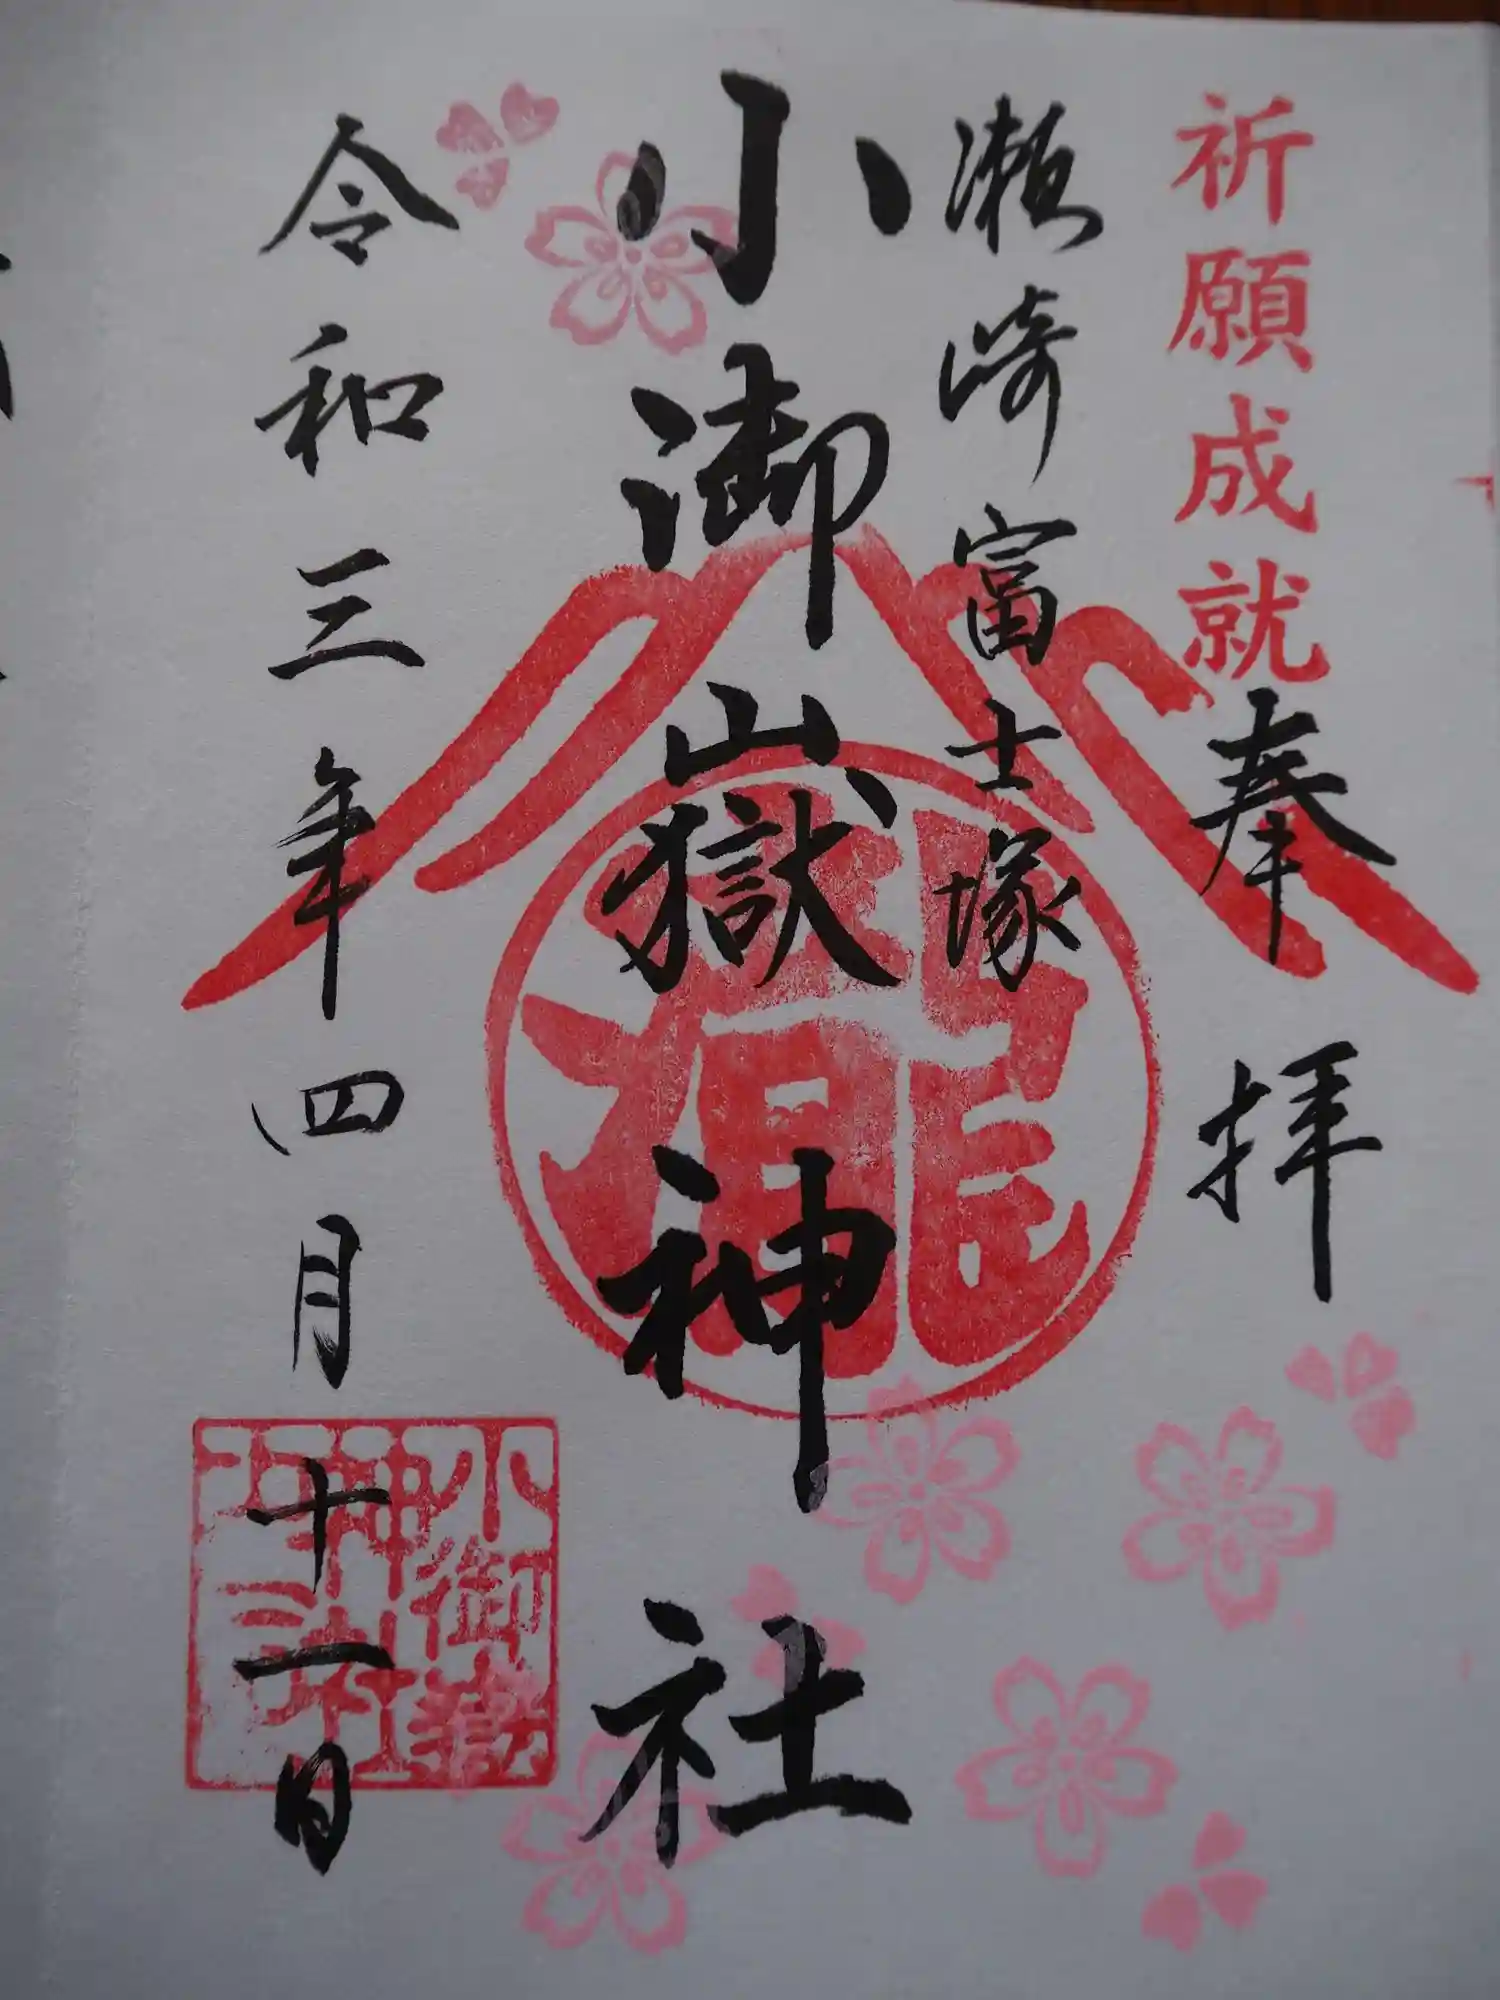 祈願成就
奉拝
瀬崎富士塚
小御嶽神社
令和三年四月十一日
小御嶽